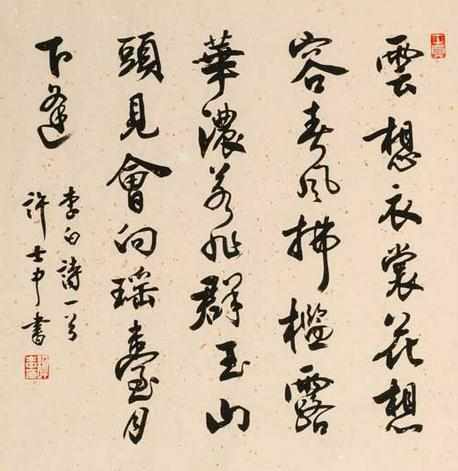 雲想衣裳花想
容春風拂檻露
華濃若非群玉山
頭見會向瑤臺月
下逢
李白詩一首
許士中書